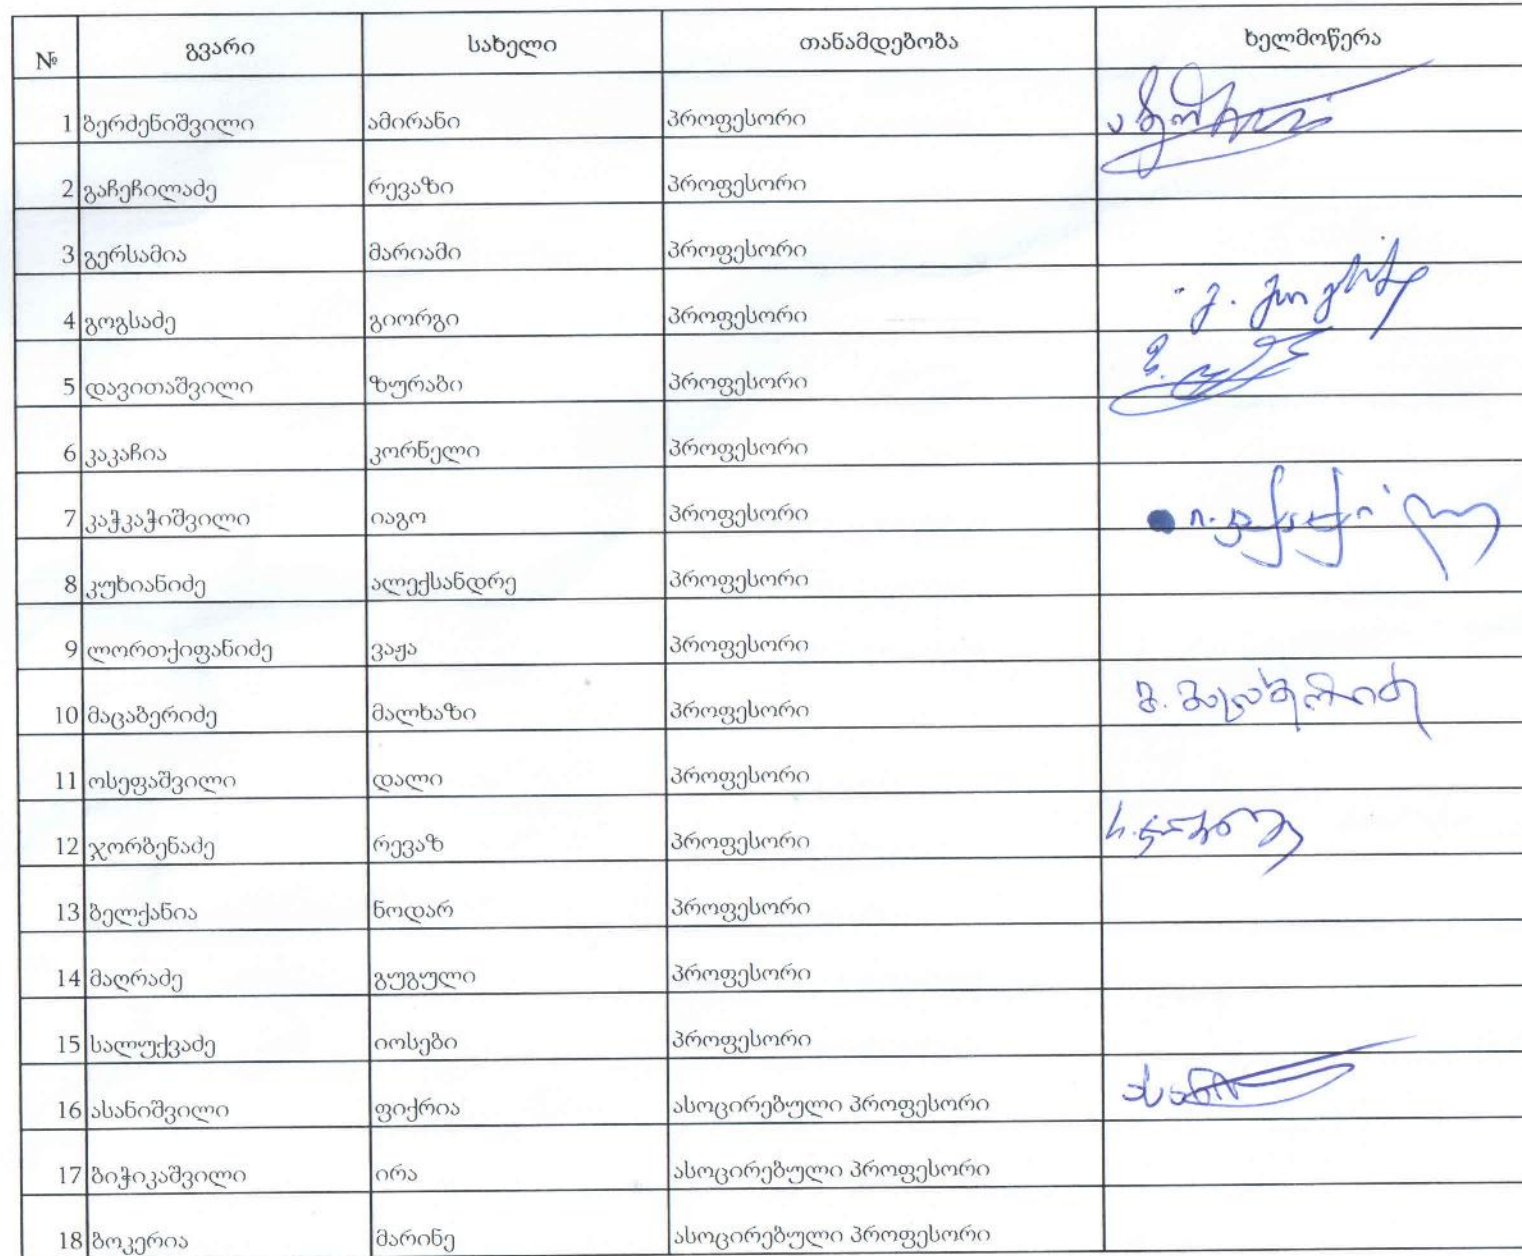 № გვარი სახელი თანამდებობა ხელმოწერა
1 ბერძენიშვილი ამირანი პროფესორი
2 გაჩეჩილაძე რევაზი პროფესორი
3 გერსამია მარიამი პროფესორი
4 გოგსაძე გიორგი პროფესორი
5 დავითაშვილი ზურაბი პროფესორი
6 კაკაჩია კორნელი პროფესორი
7 კაჭკაჭიშვილი იაგო პროფესორი
8 კუხიანიძე ალექსანდრე პროფესორი
9 ლორთქიფანიძე ვაჟა პროფესორი
10 მაცაბერიძე მალხაზი პროფესორი მ. მაცაბერიძე
11 ოსეფაშვილი დალი პროფესორი
12 ჯორბენაძე რევაზ პროფესორი
13 ბელქანია ნოდარ პროფესორი
14 მაღრაძე გუგული პროფესორი
15 სალუქვაძე იოსები პროფესორი
16 ასანიშვილი ფიქრია ასოცირებული პროფესორი
17 ბიჭიკაშვილი ირა ასოცირებული პროფესორი
18 ბოკერია მარინე ასოცირებული პროფესორი